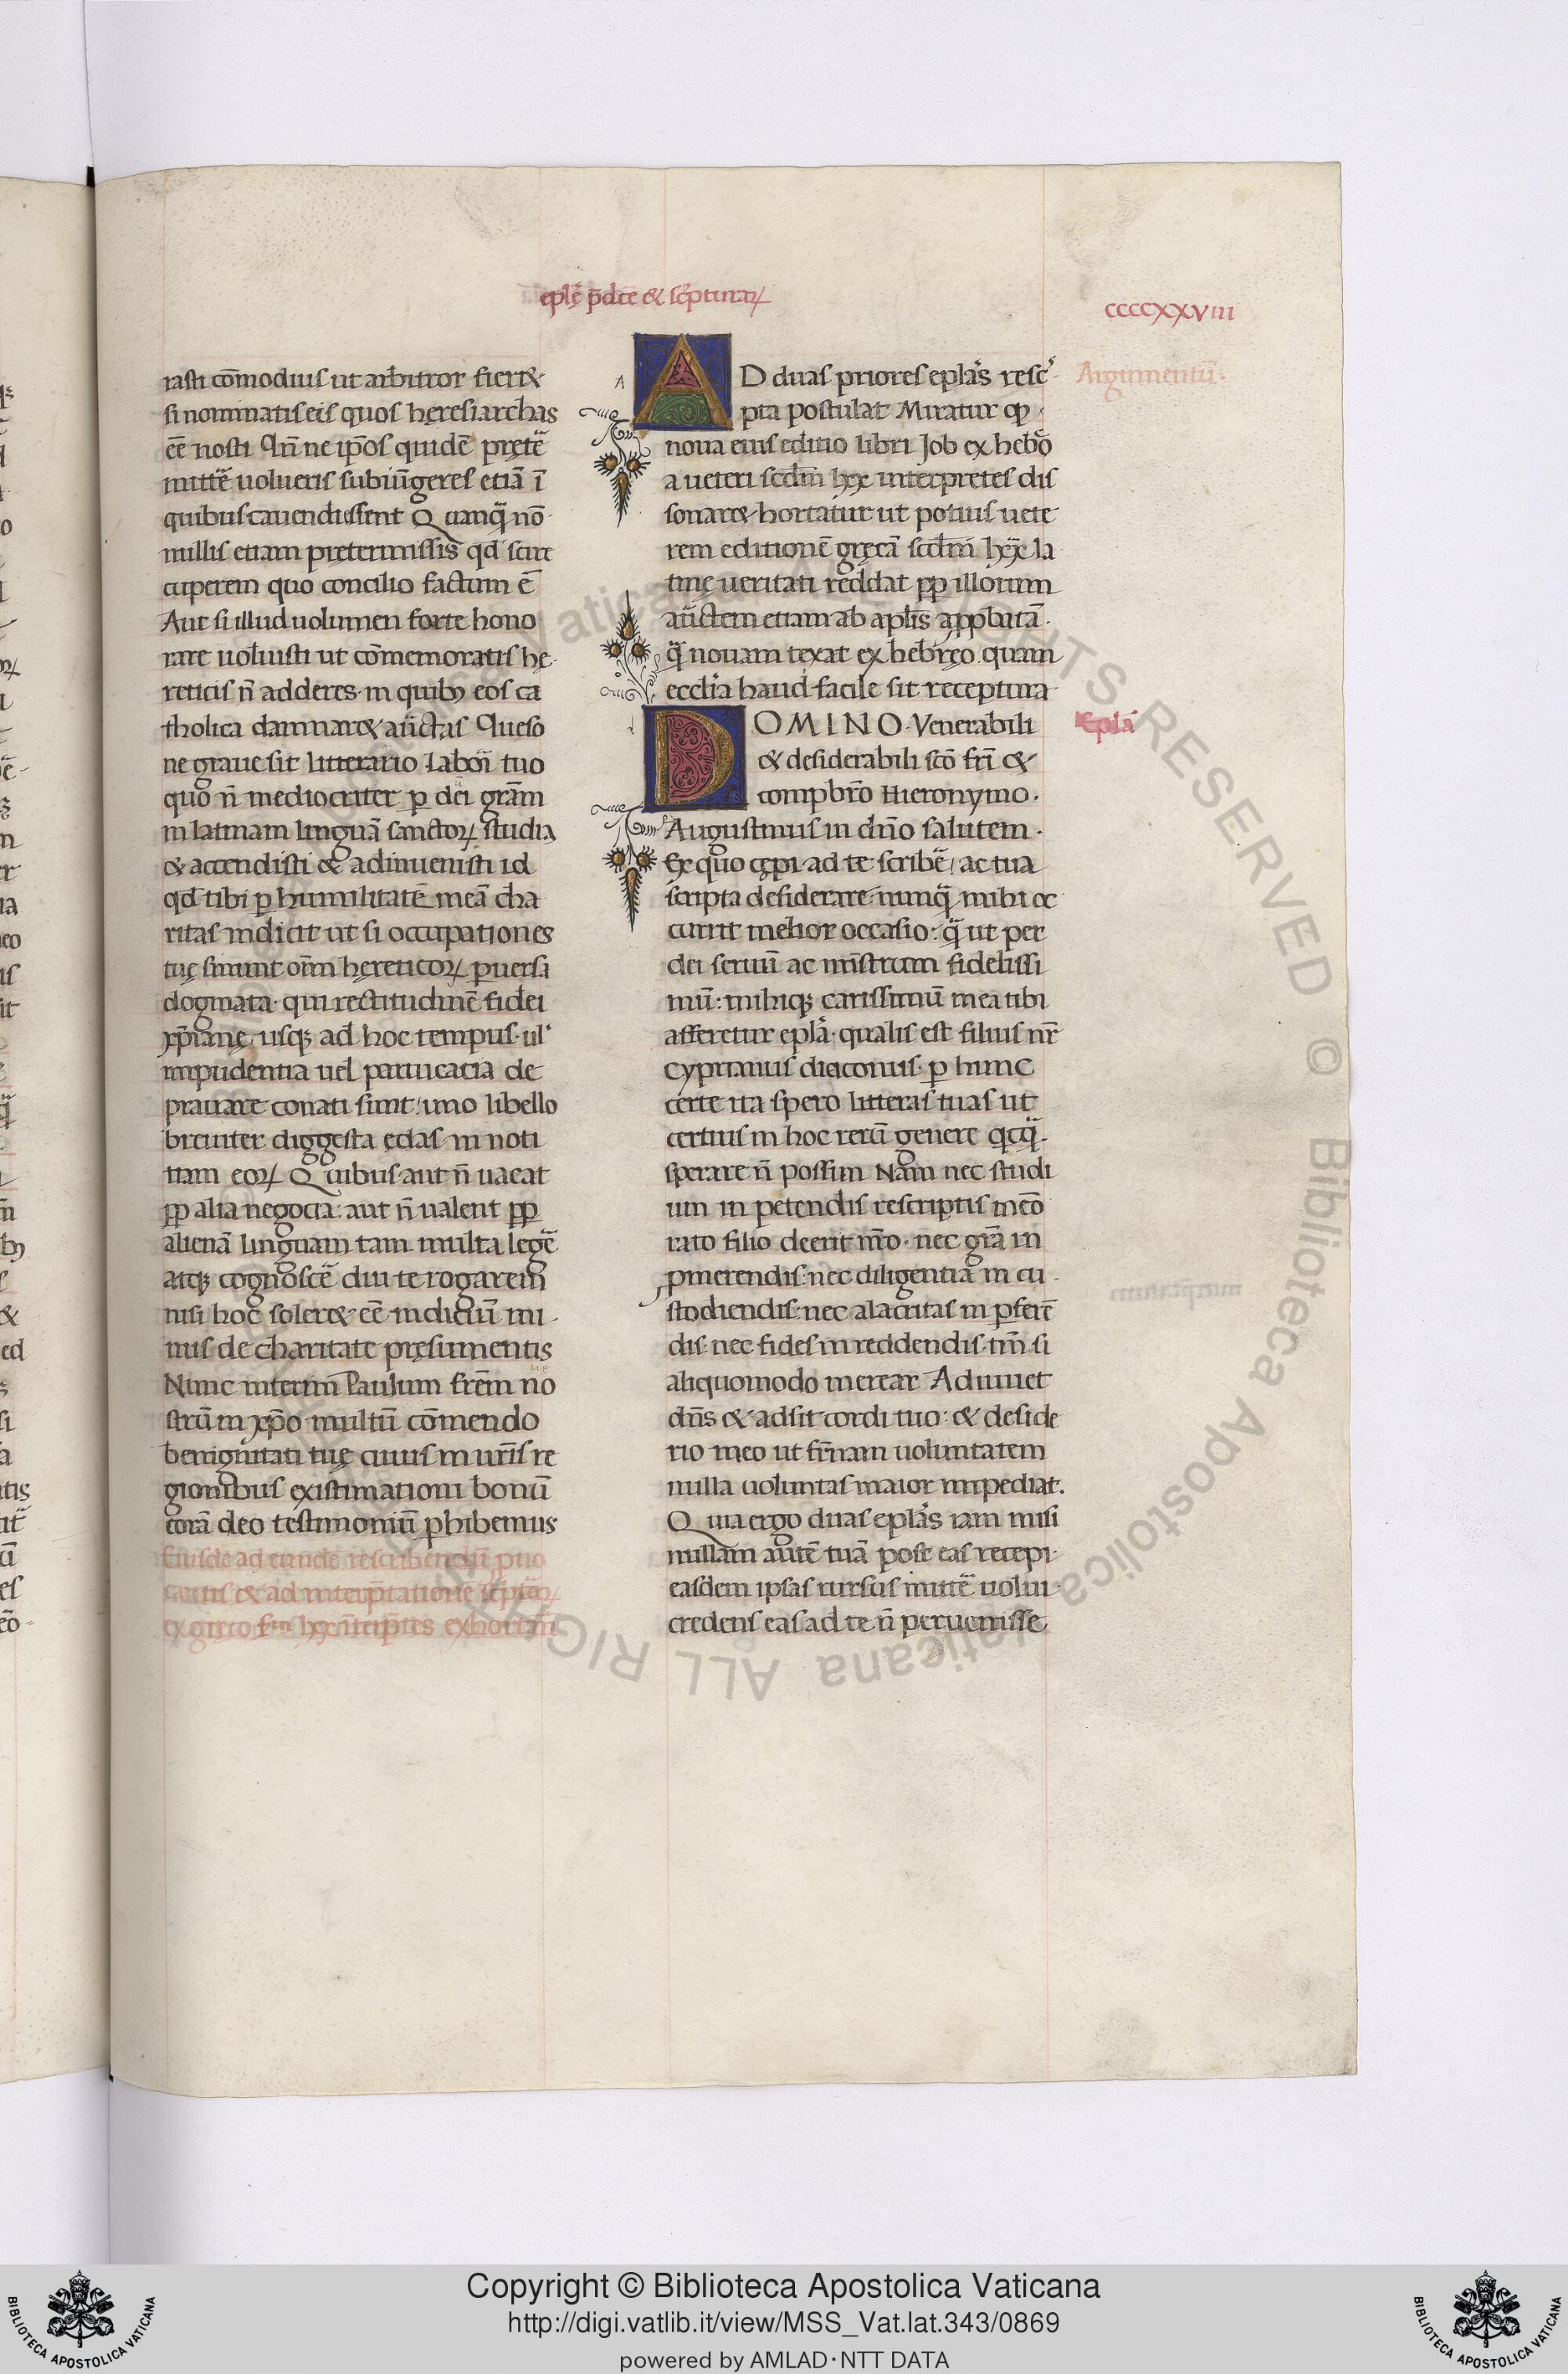 eplę p̄dcē & sc̄pturaꝝ
ccccxxviii
rasti cōmodius ut arbitror fieret
si nominatis eis quos heresiarchas
eē nosti Aut̄ ne ip̄os quidē pręte
mittē uolueris subiūgeres etiā ī
quibus cauendi essent Quanq̄ nō
nullis etiam pretermissis qd̄ scire
cuperem quo concilio factum ē
Aut si illud uolumen forte hono
rare uoluisti ut cōmemoratis hę
reticis n̄ adderes in quibꝯ eos ca
tholica damnaret auctās Queso
ne graue sit litterario labori tuo
quo n̄ mediocriter ꝑ dei grām
in latinam linguā sanctoꝝ studia
& accendisti & adiuuenisti id
qd̄ tibi ꝑ humilitatē meā cha
ritas indicit ut si occupationes
tuę sinunt om̄n hęreticoꝝ ꝑuersa
dogmata qui rectitudinē fidei
xp̄ianę usqꝫ ad hoc tempus ul̓
impudentia uel paruicacia de
prauare conati sunt uno libello
breuiter diggesta edas in noti
tiam eoꝝ Quibus aut n̄ uacat
ꝓp alia negocia aut n̄ ualent ꝓp
alienā linguam tam multa legē
atqꝫ cognoscē diu te rogarem
nisi hoc soleret eē indiciū mi
nus de charitate pręsumentis
Nunc interim Paulum frēm no
strū in xp̄o multū cōmendo
benignitati tuę cuius in urīs re
gionibus existimationi bonū
corā deo testimoniū ꝑhibemus
Eiusdē ad eundē rescribendū ꝓuo
cantis & ad interp̄tationē sc̄ptūaꝝ
ex greco sm̄ lxx īterp̄tes exhortan̄
AD duas priores eplās resc̓
pta postulat Miratur ꝙ
noua eius editio libri Job ex hebrō
a ueteri scdm̄ lxx interpretes dis
sonaret hortatur ut potius uete
rem editionē gręcā scdm̄ lxx la
tinę ueritati reddat ꝓp illorum
auctem etiam ab aplīs appbatā
q̄ nouam texat ex hebręo quam
ecclīa haud facile sit receptura
Argumentū
DOMINO Venerabili
& desiderabili scō frī &
compbrō Hieronymo.
Augustinus in dn̄o salutem.
Epla
Ex quo cępi ad te scribē ac tua
scripta desiderare nunq̄ mihi oc
currit melior occasio q̄ ut per
dei seruū ac mīstrum fidelissi
mū mihiqꝫ carissimū mea tibi
afferetur eplā qualis est filius nr̄
Cyprianus diaconus ꝑ hunc
certe ita spero litteras tuas ut
certius in hoc rerū genere qcq̄
sperare n̄ possim Nam nec studi
um in petendis rescriptis meō
rato filio deerit nr̄o nec grā in
pmerendis nec diligentia in cu
stodiendis nec alacritas in ꝑferē
dis nec fides in reddendis tm̄ si
aliquomodo merear Adiuuet
dn̄s & adsit cordi tuo & deside
rio meo ut fr̄nam uoluntatem
nulla uoluntas maior impediat.
Quia ergo duas eplās iam misi
nullam autē tuā post eas recepi
easdem ipsas rursus mittē uolui
credens eas ad te n̄ peruenisse
Copyright © Biblioteca Apostolica Vaticana
http://digi.vatlib.it/view/MSS_Vat.lat.343/0869
powered by AMLAD·NTT DATA
BIBLIOTECA APOSTOLICA VATICANA
BIBLIOTECA APOSTOLICA VATICANA